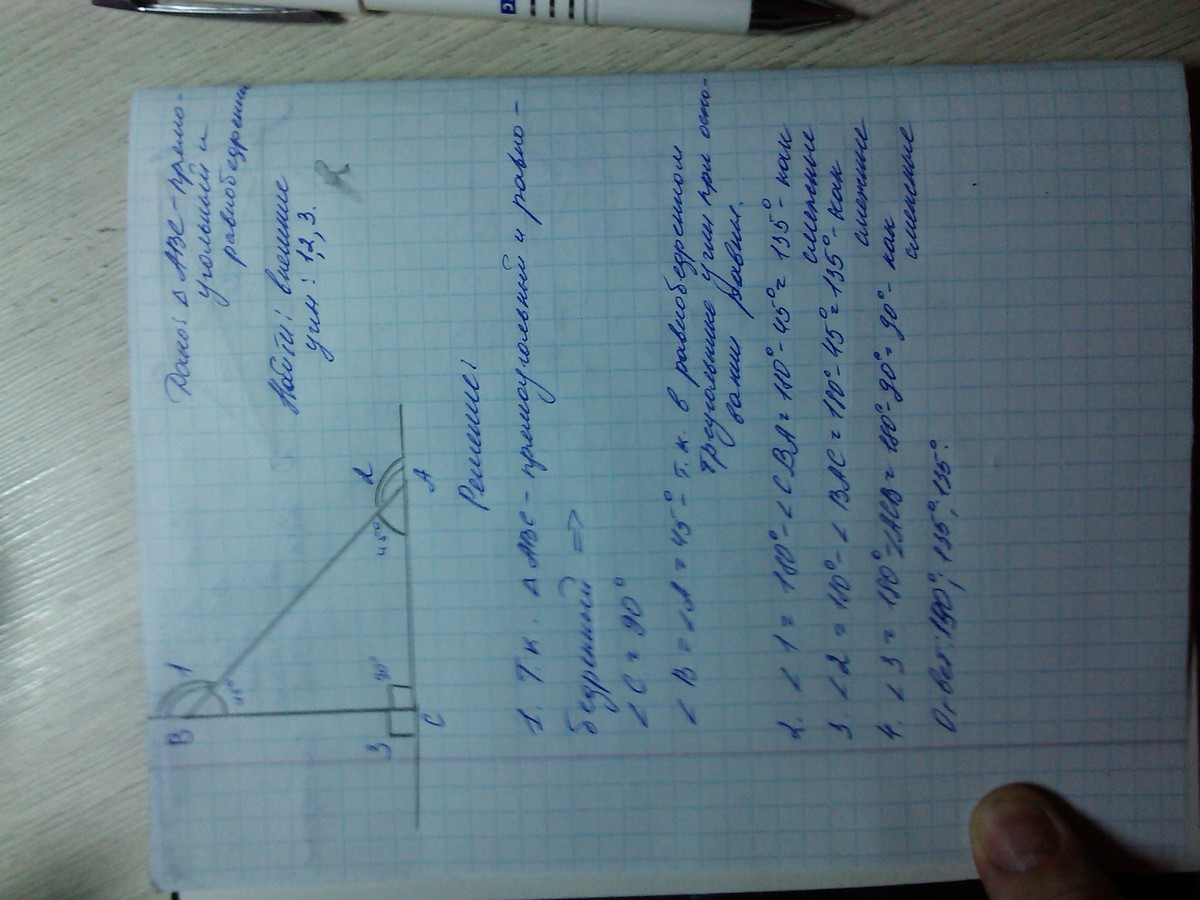 Дано: Δ ABC - прямо-
угольный и
равнобедренный
Найти: внешние
углы: 1,2,3.
B
1
45°
3
90°
C
45°
2
A
Решение:
1. Т.к. Δ ABC - прямоугольный и равно-
бедренный =>
∠ C = 90°
∠ B = ∠A = 45° - т.к. в равнобедренном
треугольнике углы при осно-
вании равны.
2. ∠ 1 = 180° - ∠ CBA = 180° - 45° = 135° - как
смежные
3. ∠ 2 = 180° - ∠ BAC = 180° - 45° = 135° - как
смежные
4. ∠ 3 = 180° - ∠ACB = 180° - 90° = 90° - как
смежные
Ответ: 135°; 135°.